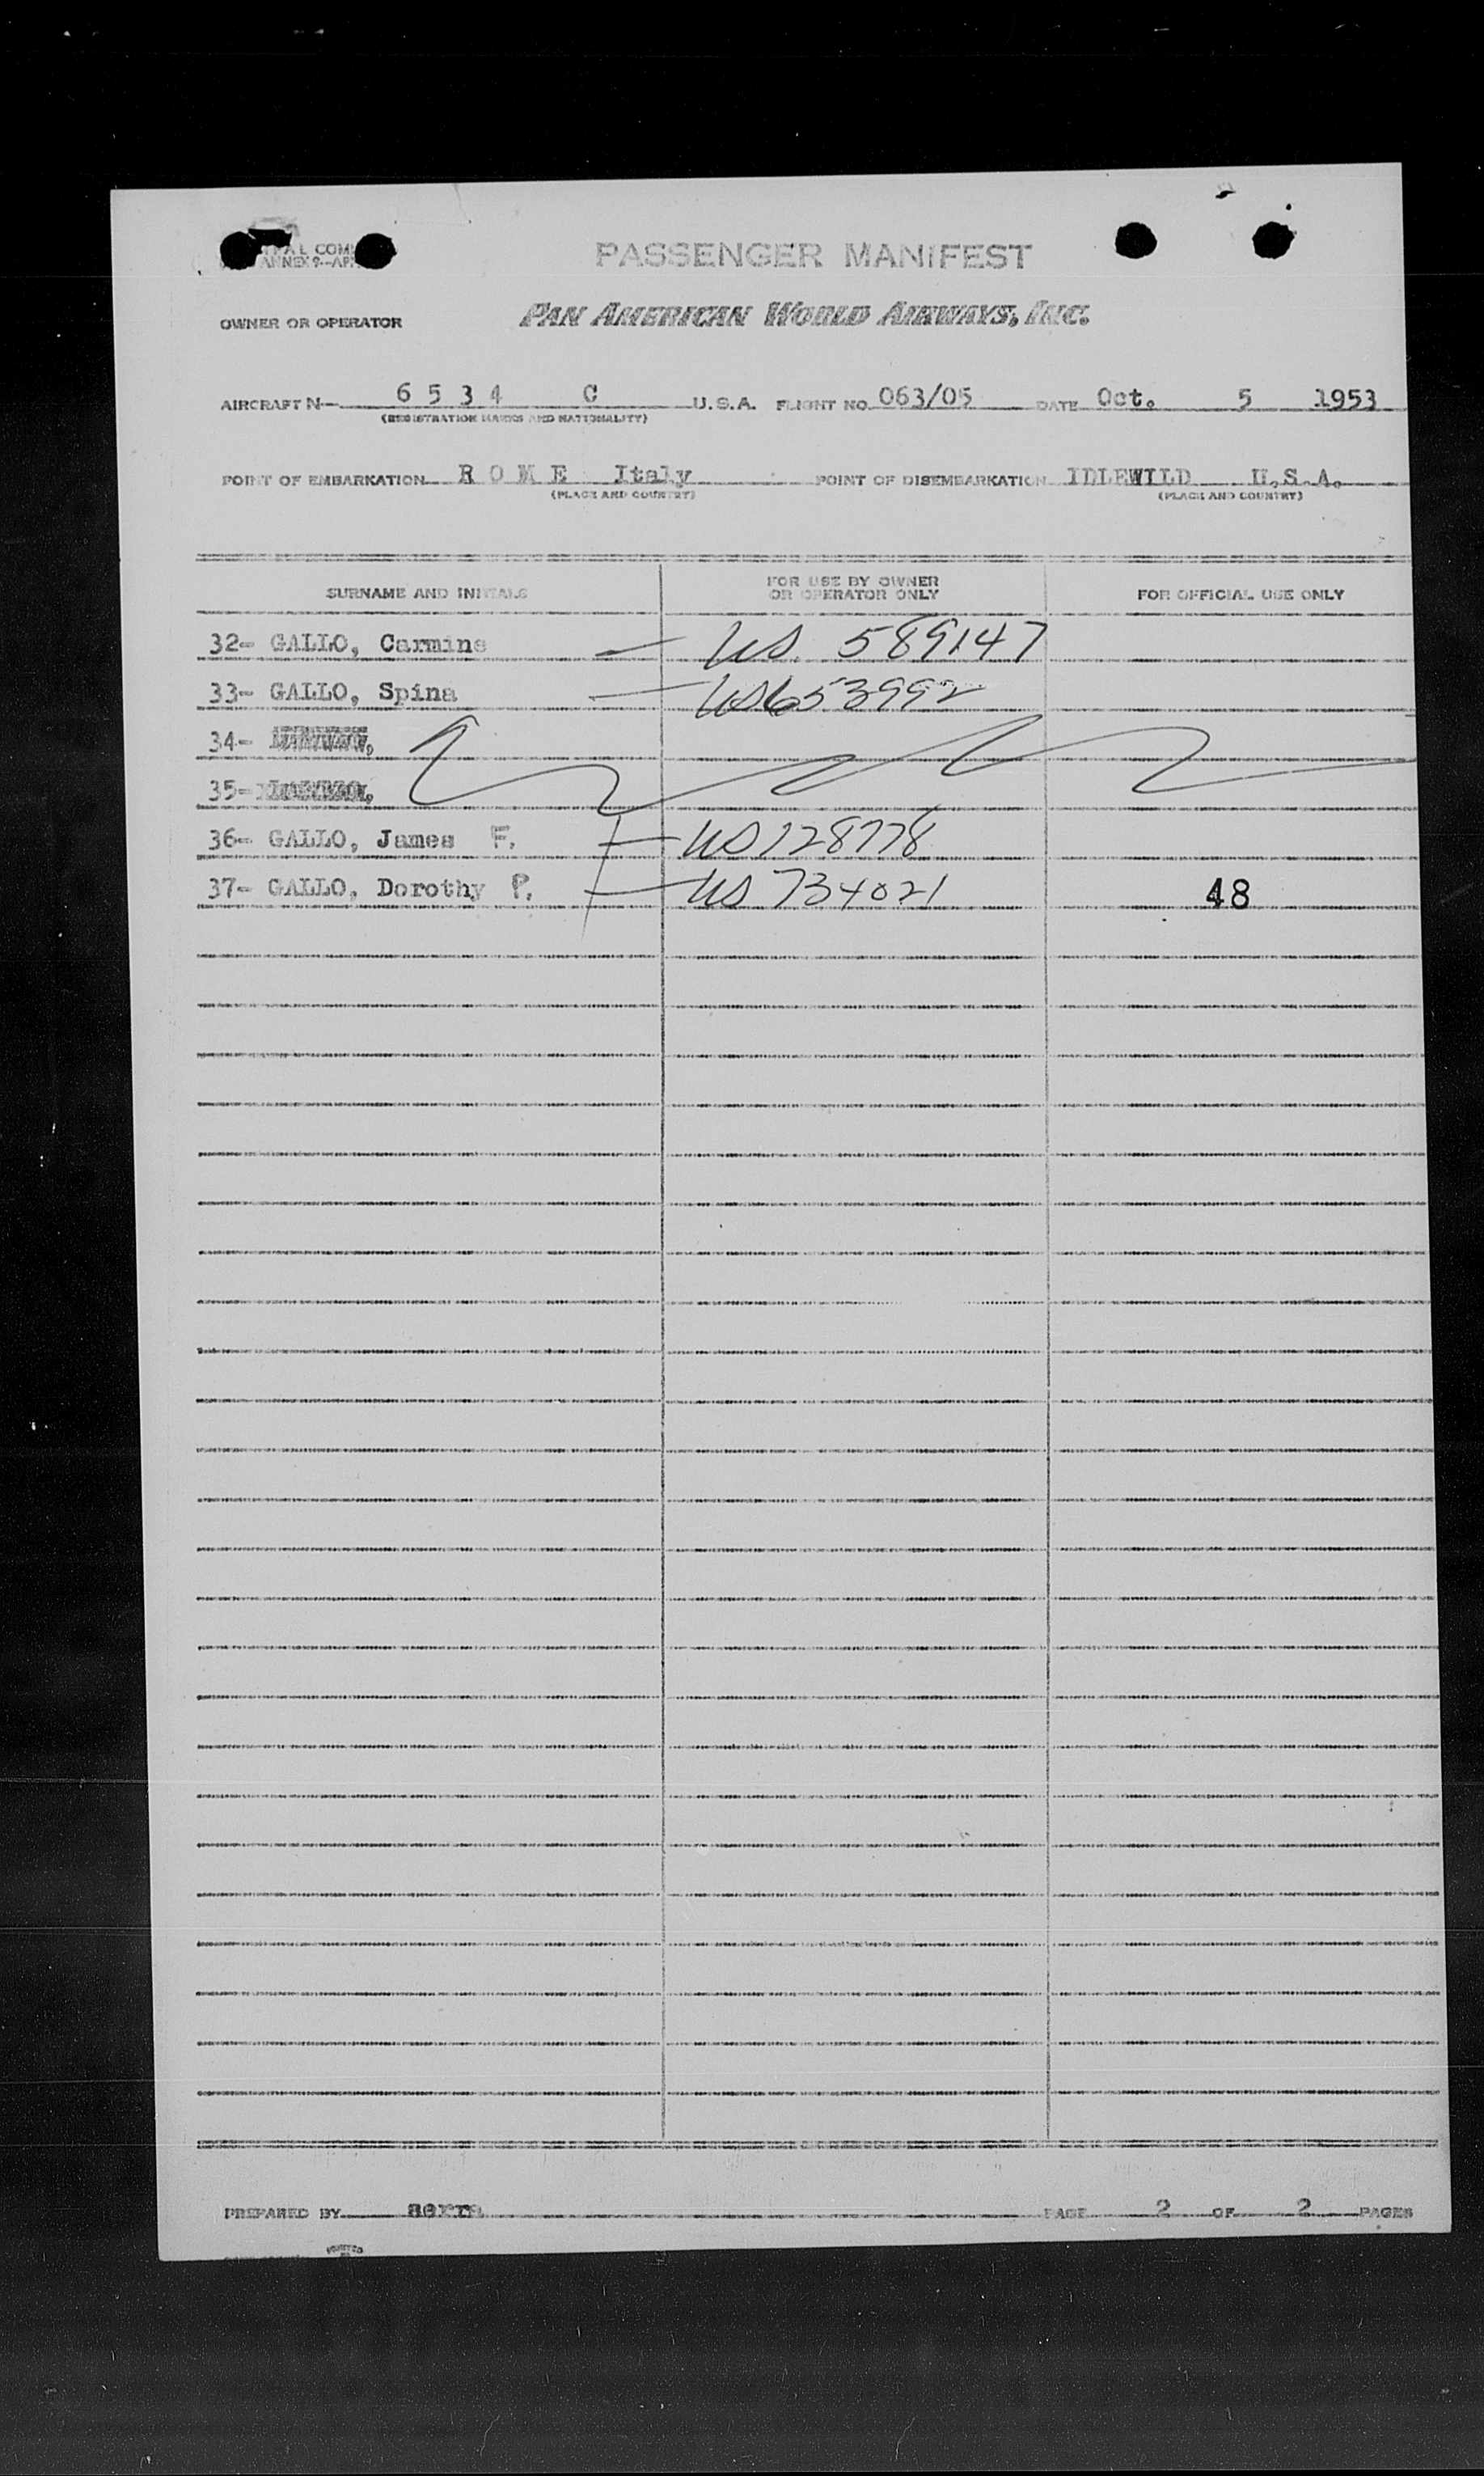 PASSENGER MANIFEST
OWNER OR OPERATOR PAN AMERICAN WORLD AIRWAYS, INC.
AIRCRAFT N 6 5 3 4 C U.S.A. FLIGHT NO. 063/05 DATE Oct. 5 1953
(REGISTRATION MARKS AND NATIONALITY)
POINT OF EMBARKATION R O M E Italy POINT OF DISEMBARKATION IDLEWILD U.S.A.
(PLACE AND COUNTRY) (PLACE AND COUNTRY)
SURNAME AND INITIALS FOR USE BY OWNER OR OPERATOR ONLY FOR OFFICIAL USE ONLY
32- GALLO, Carmine — US. 589147
33- GALLO, Spina — US 653992
34-
35-
36- GALLO, James F. — US 128778
37- GALLO, Dorothy P. — US 734021 48
PREPARED BY serra PAGE 2 OF 2 PAGES